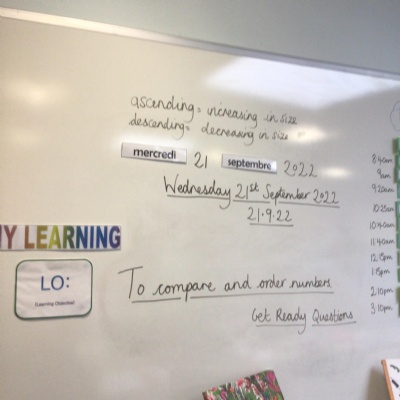 ascending = increasing in size
descending = decreasing in size
mercredi 21 septembre 2022
Wednesday 21st September 2022
21.9.22
Y LEARNING
LO:
(Learning Objective)
To compare and order numbers
Get Ready Questions
8:40am
9am
9:20am
10:25am
10:40am
11:40am
12:15pm
1:15pm
2:10pm
3:10pm